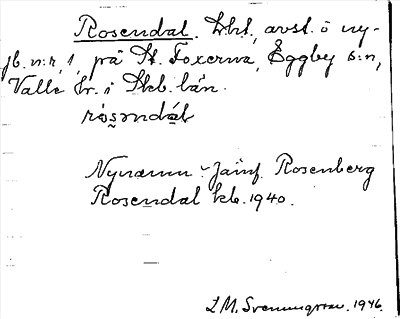 Rosendal. Lht, avst. o ny-
jb. n:r 1, på St. Foxerna, Eggby s:n,
Valle hr. i Skb. län.
rosəndal
Nynamn. Jämf. Rosenberg
Rosendal kb. 1940.
L M. Svenungsson. 1946.